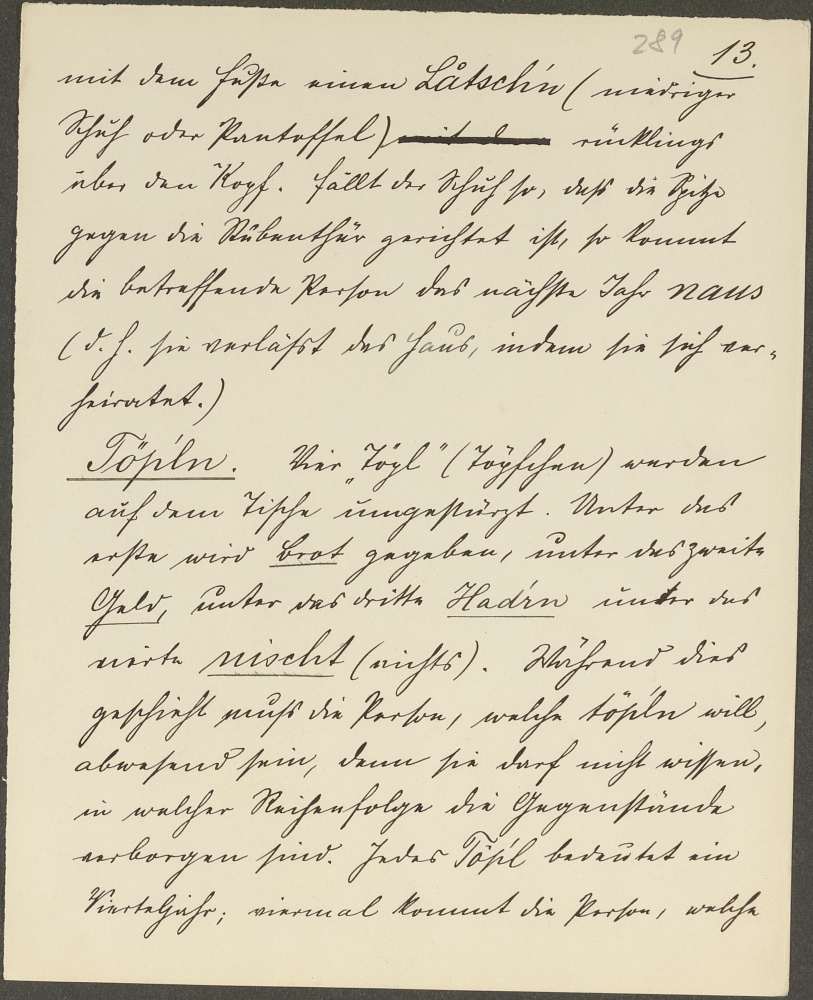 289 13.
mit dem Fuße einen Låtschŉ (niedriger
Schuh oder Pantoffel) mit dem rücklings
über den Kopf. Fällt der Schuh so, daß die Spitze
gegen die Stubenthür gerichtet ist, so kommt
die betreffende Person das nächste Jahr naus
(d. h. sie verläßt das Haus, indem sie sich ver-
heiratet.)
Töpĺn. Vier „Töpl" (Töpfchen) werden
auf dem Tische umgestürzt. Unter das
erste wird Brot gegeben, unter das zweite
Geld, unter das dritte Hadŕn unter das
vierte nischt (nichts). Während dies
geschieht muß die Person, welche töpĺn will,
abwesend sein, denn sie darf nicht wissen,
in welcher Reihenfolge die Gegenstände
verborgen sind. Jedes Töpĺ bedeutet ein
Vierteljahr; viermal kommt die Person, welche